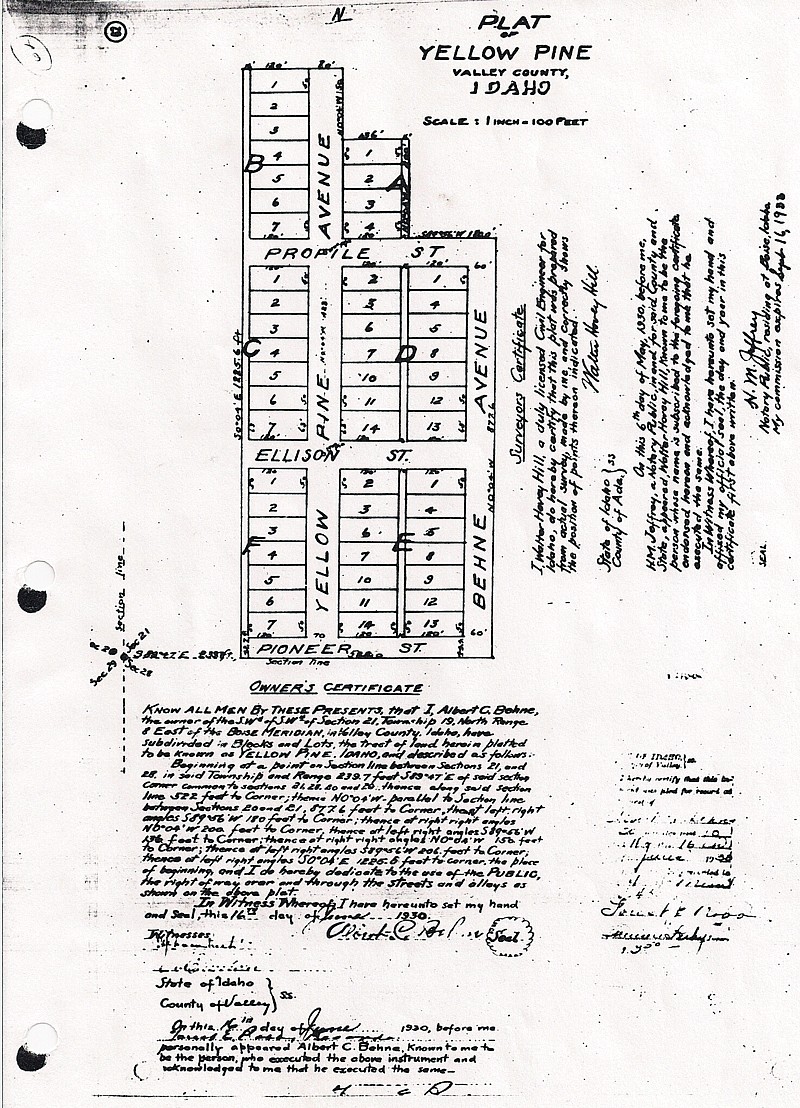 N
PLAT
OF
YELLOW PINE
VALLEY COUNTY,
IDAHO
SCALE : 1 INCH = 100 FEET
120' 80'
B
1
2
3
4
5
6
7
AVENUE
136'
A
1
2
3
4
PROFILE ST
C
1
2
3
4
5
6
7
S0°04'E 1225.6 ft
PINE
D
2 1
3
6 5
7 8
10 9
11 12
14 13
AVENUE
60'
877.6
N0°04'W
ELLISON ST.
F
1
2
3
4
5
6
7
YELLOW
E
2 1
3 4
6 5
7 8
10 9
11 12
14 13
BEHNE
60'
70
PIONEER ST.
Section line
Section line
Sec 21
Sec 28
Sec 29
Surveyors Certificate
I, Walter Hovey Hill, a duly licensed Civil Engineer for
Idaho, do hereby certify that this plat was prepared
from actual survey, made by me, and correctly shows
the position of points thereon indicated.
Walter Hovey Hill
State of Idaho } SS
County of Ada.
On this 6th day of May, 1930, before me,
H.M. Jeffrey, a Notary Public, in and for said County and
State, appeared, Walter Hovey Hill, Known to me to be the
person whose name is subscribed to the foregoing certificate
endorsed hereon and acknowledged to me that he
executed the same.
In Witness Whereof, I have hereunto set my hand and
affixed my official seal, the day and year in this
certificate first above written.
H. M. Jeffrey
Notary Public, residing at Boise, Idaho.
My commission expires Sept 16, 1933
SEAL
OWNER'S CERTIFICATE
KNOW ALL MEN BY THESE PRESENTS, that I, Albert C. Behne,
the owner of the SW4 of SW4 of Section 21, Township 19, North Range
8 East of the BOISE MERIDIAN, in Valley County, Idaho, have
subdivided in Blocks and Lots, the tract of land herein platted
to be known as YELLOW PINE, IDAHO, and described as follows:
Beginning at a point on Section line between Sections 21, and
28, in said Township and Range 239.7 feet S89°47'E of said section
corner common to sections 21, 28, 20 and 29, thence along said section
line 522 feet to Corner; thence N0°04'W- parallel to Section line
between Sections 20 and 21, 877.6 feet to Corner; thence left right
angles S89°56'W 180 feet to Corner; thence at right right angles
N0°04'W 200 feet to Corner, thence at left right angles S89°56'W
136 feet to Corner; thence at right right angles N0°04'W 150 feet
to Corner; thence at left right angles S89°56'W 206 feet to Corner;
thence at left right angles S0°04'E 1225.6 feet to corner, the place
of beginning, and I do hereby dedicate to the use of the PUBLIC,
the right of way over and through the streets and alleys as
shown on the above plat.
In Witness Whereof, I have hereunto set my hand
and Seal, this 16th day of June 1930.
Albert C. Behne
Seal
Witnesses
State of Idaho } SS.
County of Valley
On this 16th day of June 1930, before me
personally appeared Albert C. Behne, Known to me to
be the person, who executed the above instrument and
acknowledged to me that he executed the same-